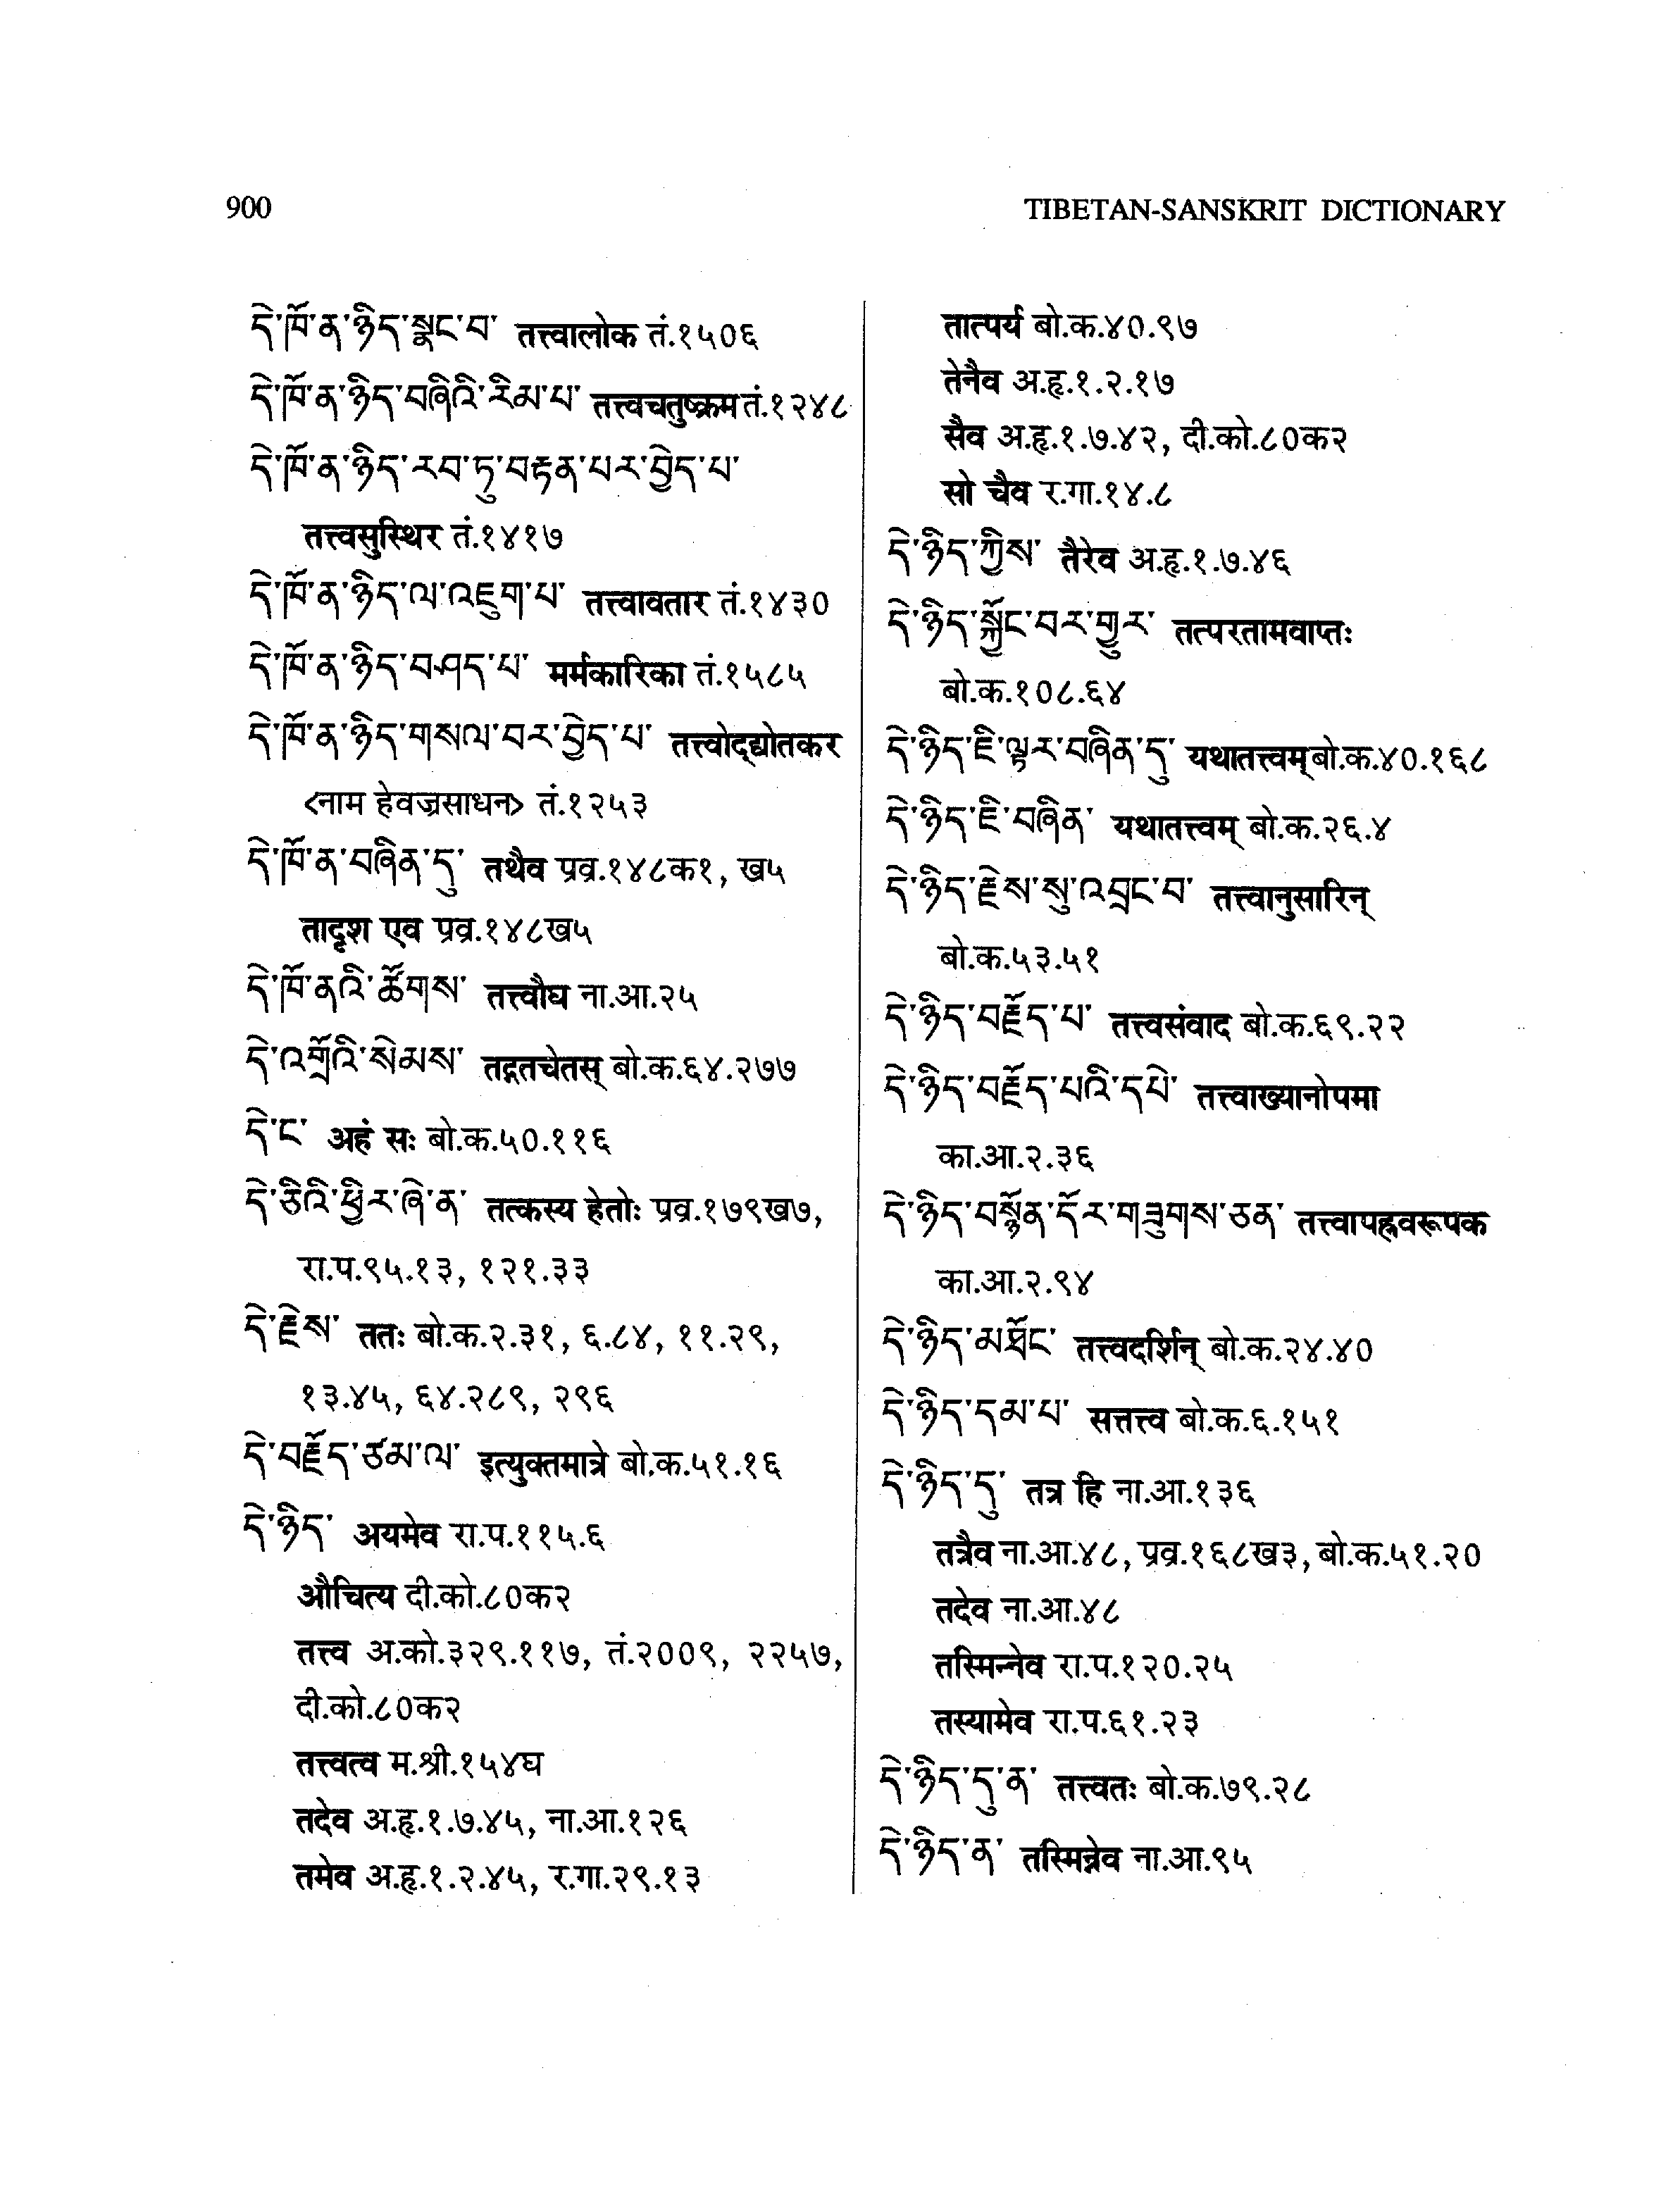 900
TIBETAN-SANSKRIT DICTIONARY
དེ་ཁོ་ན་ཉིད་སྣང་བ་ तत्त्वालोक तं.१५०६
དེ་ཁོ་ན་ཉིད་བཞིའི་རིམ་པ་ तत्त्वचतुष्क्रम तं.१२४८
དེ་ཁོ་ན་ཉིད་རབ་ཏུ་བརྟན་པར་བྱེད་པ་
तत्त्वसुस्थिर तं.१४१७
དེ་ཁོ་ན་ཉིད་ལ་འཇུག་པ་ तत्त्वावतार तं.१४३०
དེ་ཁོ་ན་ཉིད་བཤད་པ་ मर्मकारिका तं.१५८५
དེ་ཁོ་ན་ཉིད་གསལ་བར་བྱེད་པ་ तत्त्वोद्द्योतकर
<नाम हेवज्रसाधन> तं.१२५३
དེ་ཁོ་ན་བཞིན་དུ་ तथैव प्रव्र.१४८क१, ख५
तादृश एव प्रव्र.१४८ख५
དེ་ཁོ་ནའི་ཚོགས་ तत्त्वौघ ना.आ.२५
དེ་འགྲོའི་སེམས་ तद्गतचेतस् बो.क.६४.२७७
དེ་ང་ अहं सः बो.क.५०.११६
དེ་ཅིའི་ཕྱིར་ཞེ་ན་ तत्कस्य हेतोः प्रव्र.१७९ख७,
रा.प.९५.१३, १२१.३३
དེ་རྗེས་ ततः बो.क.२.३१, ६.८४, ११.२९,
१३.४५, ६४.२८९, २९६
དེ་བརྗོད་ཙམ་ལ་ इत्युक्तमात्रे बो.क.५१.१६
དེ་ཉིད་ अयमेव रा.प.११५.६
औचित्य दी.को.८०क२
तत्त्व अ.को.३२९.११७, तं.२००९, २२५७,
दी.को.८०क२
तत्त्वत्व म.श्री.१५४घ
तदेव अ.हृ.१.७.४५, ना.आ.१२६
तमेव अ.हृ.१.२.४५, र.गा.२९.१३
तात्पर्य बो.क.४०.९७
तेनैव अ.हृ.१.२.१७
सैव अ.हृ.१.७.४२, दी.को.८०क२
सो चैव र.गा.१४.८
དེ་ཉིད་ཀྱིས་ तैरेव अ.हृ.१.७.४६
དེ་ཉིད་སྐྱོང་བར་གྱུར་ तत्परतामवाप्तः
बो.क.१०८.६४
དེ་ཉིད་ཇི་ལྟར་བཞིན་དུ་ यथातत्त्वम् बो.क.४०.१६८
དེ་ཉིད་ཇི་བཞིན་ यथातत्त्वम् बो.क.२६.४
དེ་ཉིད་རྗེས་སུ་འབྲང་བ་ तत्त्वानुसारिन्
बो.क.५३.५१
དེ་ཉིད་བརྗོད་པ་ तत्त्वसंवाद बो.क.६९.२२
དེ་ཉིད་བརྗོད་པའི་དཔེ་ तत्त्वाख्यानोपमा
का.आ.२.३६
དེ་ཉིད་བསྙོན་དོར་གཟུགས་ཅན་ तत्त्वापह्नवरूपक
का.आ.२.९४
དེ་ཉིད་མཐོང་ तत्त्वदर्शिन् बो.क.२४.४०
དེ་ཉིད་དམ་པ་ सत्तत्त्व बो.क.६.१५१
དེ་ཉིད་དུ་ तत्र हि ना.आ.१३६
तत्रैव ना.आ.४८, प्रव्र.१६८ख३, बो.क.५१.२०
तदेव ना.आ.४८
तस्मिन्नेव रा.प.१२०.२५
तस्यामेव रा.प.६१.२३
དེ་ཉིད་དུ་ན་ तत्त्वतः बो.क.७९.२८
དེ་ཉིད་ན་ तस्मिन्नेव ना.आ.९५